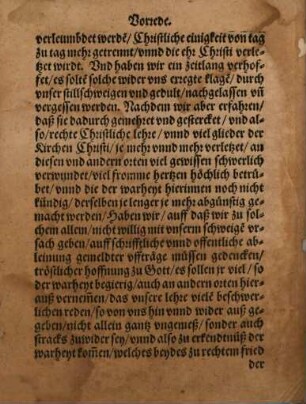 Vorrede.
verleumbdet werdē/ Christliche einigkeit von tag
zu tag mehr getrennt/ vnnd die ehr Christi verle-
tzet wirdt. Vnd haben wir ein zeitlang verhof-
fet/ es solte solche wider vns erregte klagē/ durch
vnser stillschweigen vnd gedult/ nachgelassen vñ
vergessen werden. Nachdem wir aber erfahren/
daß sie dadurch gemehret vnd gestercket/ vnd al-
so/ rechte Christliche lehre/ vnnd viel glieder der
Kirchen Christi/ je mehr vnnd mehr verletzet/ an
diesen vnd andern orten viel gewissen schwerlich
verwundet/ viel fromme hertzen höchlich betrü-
bet/ vnnd die der warheyt hierinnen noch nicht
kündig/ derselben je lenger je mehr abgünstig ge-
macht werden/ Haben wir/ auff daß wir zu sol-
chem allem/ nicht willig mit vnserm schweigē vr-
sach geben/ auff schrifftliche vnnd offentliche ab-
leinung gemeldter vfftråge müssen gedencken/
tröstlicher hoffnung zu Gott/ es sollen jr viel/ so
der warheyt begierig/ auch an andern orten hier-
auß vernemē/ das vnsere lehre vielē beschwer-
lichen reden/ so von vns hin vnnd wider auß ge-
geben/ nicht allein gantz vngemeß/ sonder auch
stracks zuwider sey/ vnnd also zu erkendtnuß der
warheyt kom̄en/ welches beydes zu rechtem fried
der